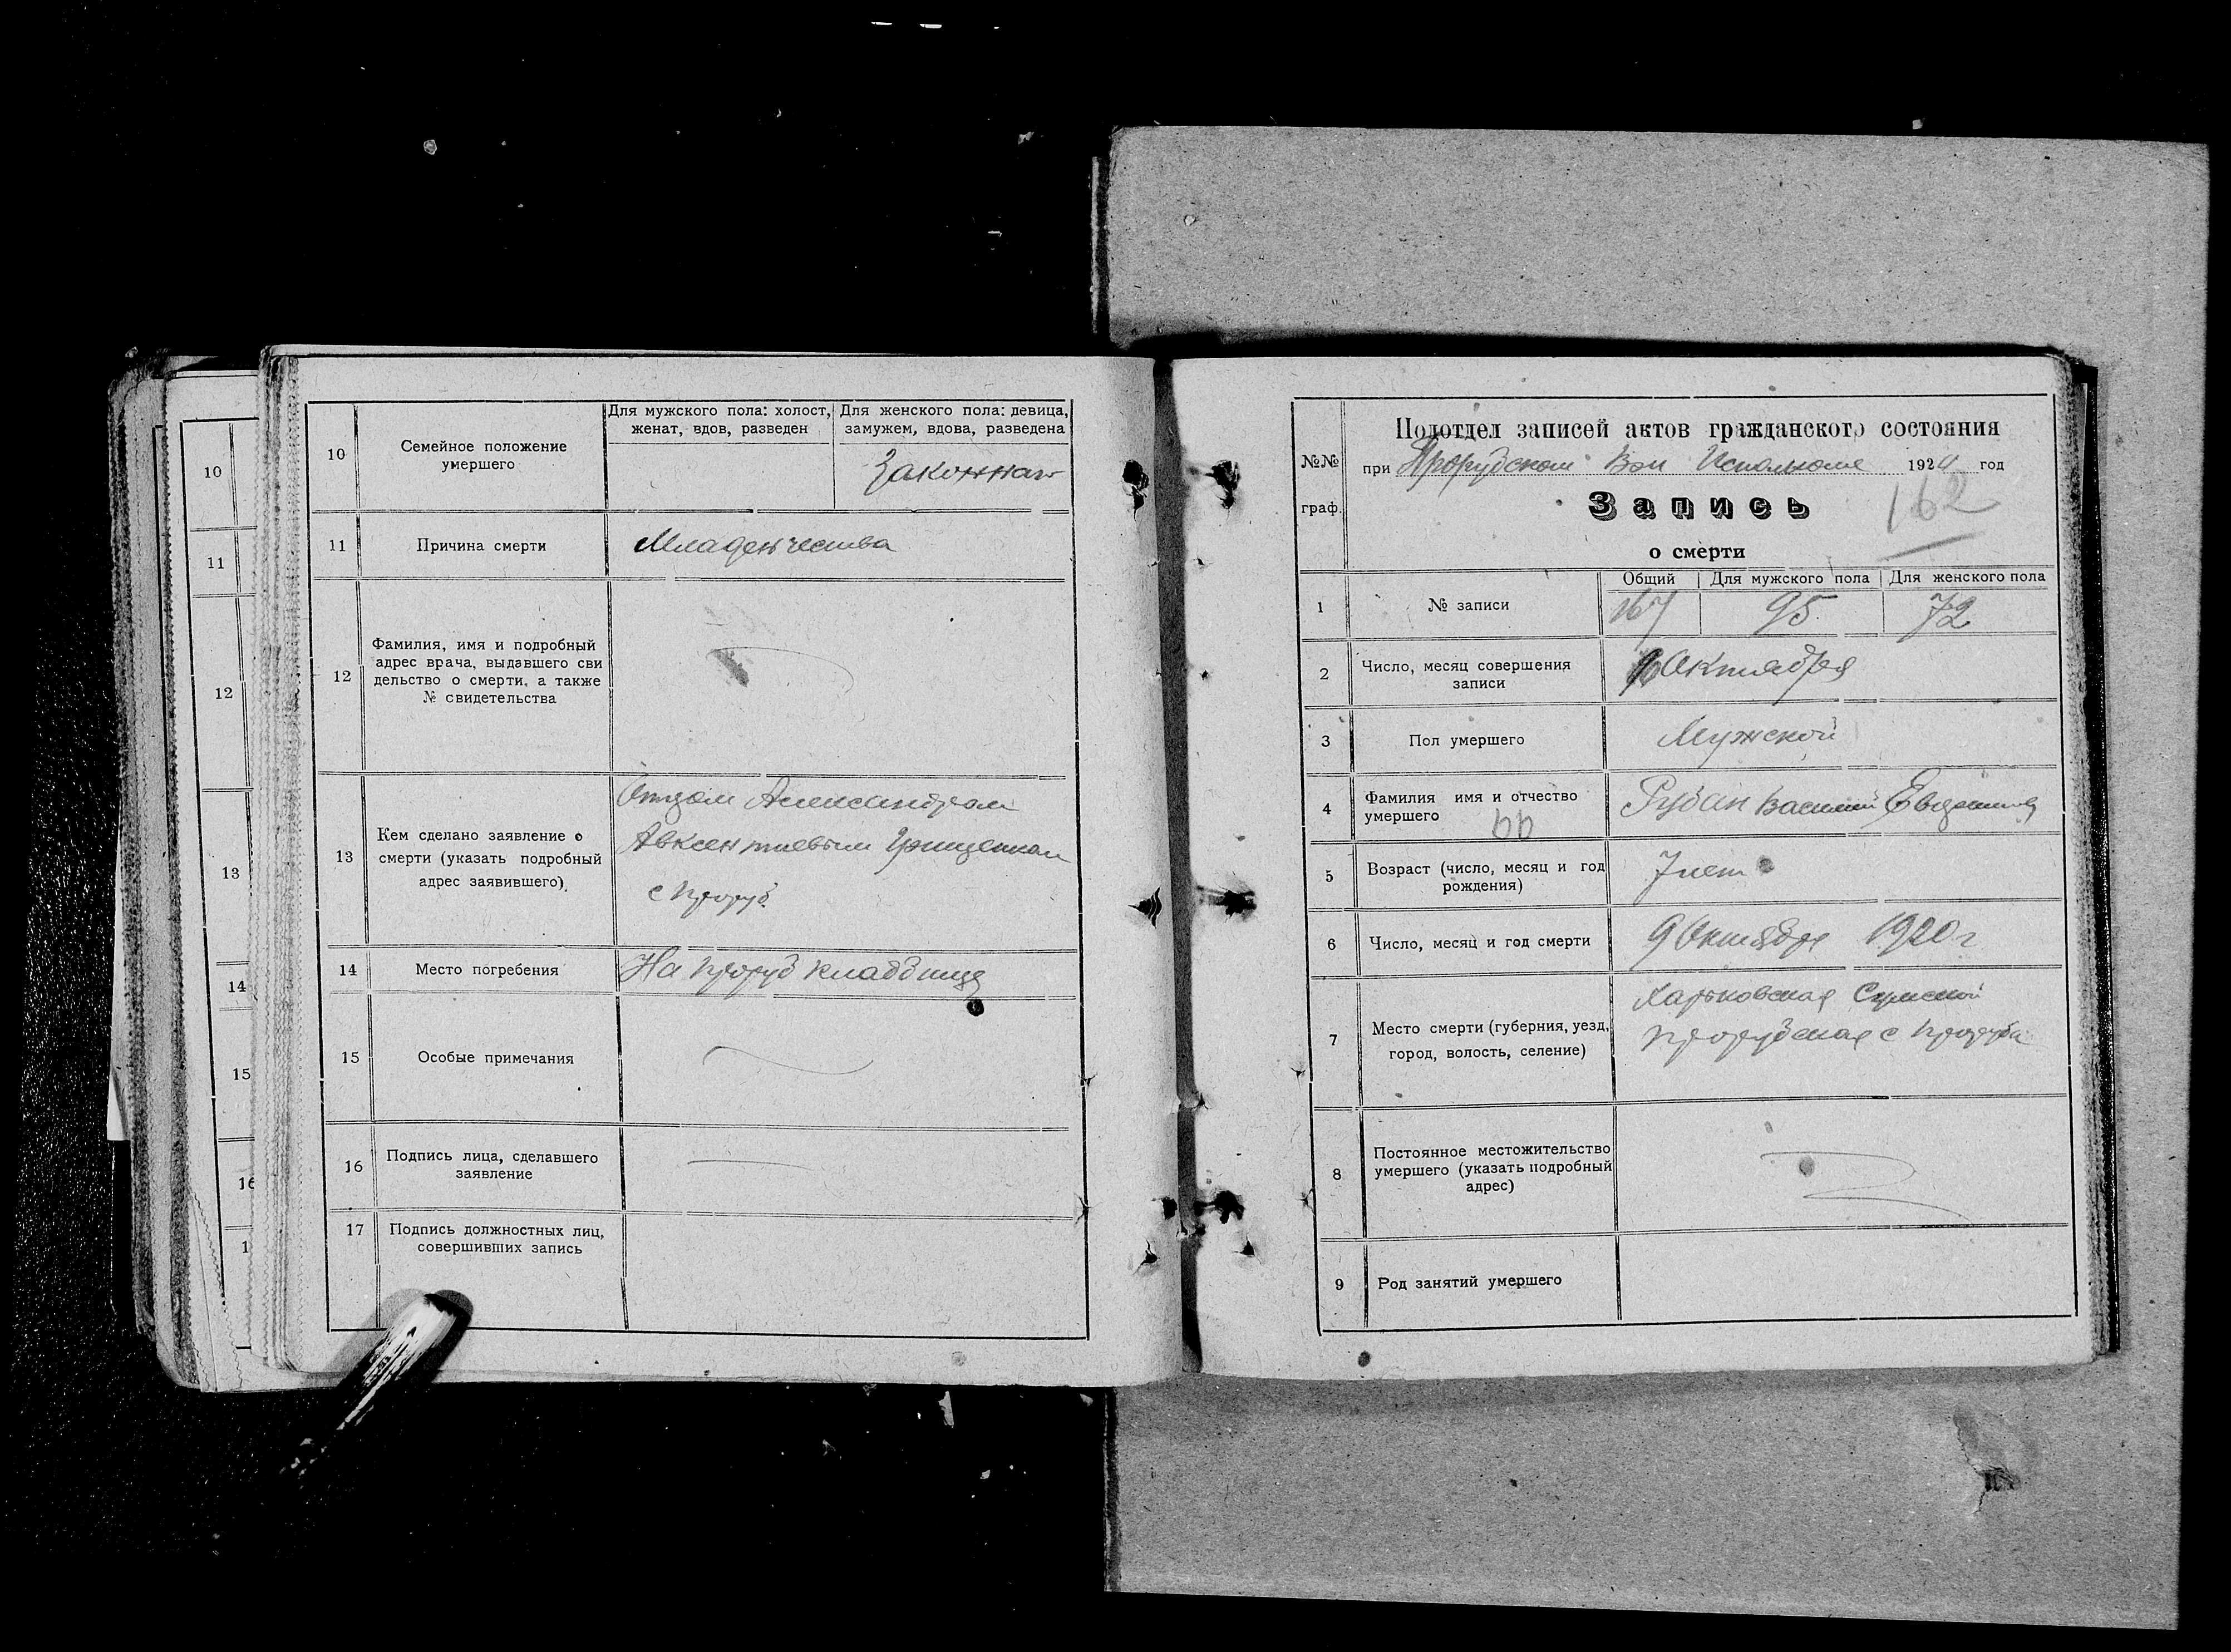 10
11
12
13
14
15
16
1
10
Семейное положение
умершего
Для мужского пола: холост,
женат, вдов, разведен
Для женского пола: девица,
замужем, вдова, разведена
Законная
11
Причина смерти
Младенчества
12
Фамилия, имя и подробный
адрес врача, выдавшего сви
дельство о смерти, а также
№ свидетельства
13
Кем сделано заявление о
смерти (указать подробный
адрес заявившего)
Отцом Александром
Авксентиевым Грищенком
с Проруб
14
Место погребения
На Проруб кладбище
15
Особые примечания
16
Подпись лица, сделавшего
заявление
17
Подпись должностных лиц,
совершивших запись
№№
граф.
Подотдел записей актов гражданского состояния
при Прорубском Вол Исполкоме 192 год
Запись
162
о смерти
1
№ записи
Общий
Для мужского пола
Для женского пола
167
95
72
2
Число, месяц совершения
записи
Октября
3
Пол умершего
Мужской
4
Фамилия имя и отчество
умершего
Рубан Василий Евдоким
5
Возраст (число, месяц и год
рождения)
7 лет
6
Число, месяц и год смерти
9 Октября 1920 г
7
Место смерти (губерния, уезд,
город, волость, селение)
Харьковская Сумской
Прорубская с Проруба
8
Постоянное местожительство
умершего (указать подробный
адрес)
9
Род занятий умершего